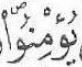 يُؤْمِنُواْ ۖ